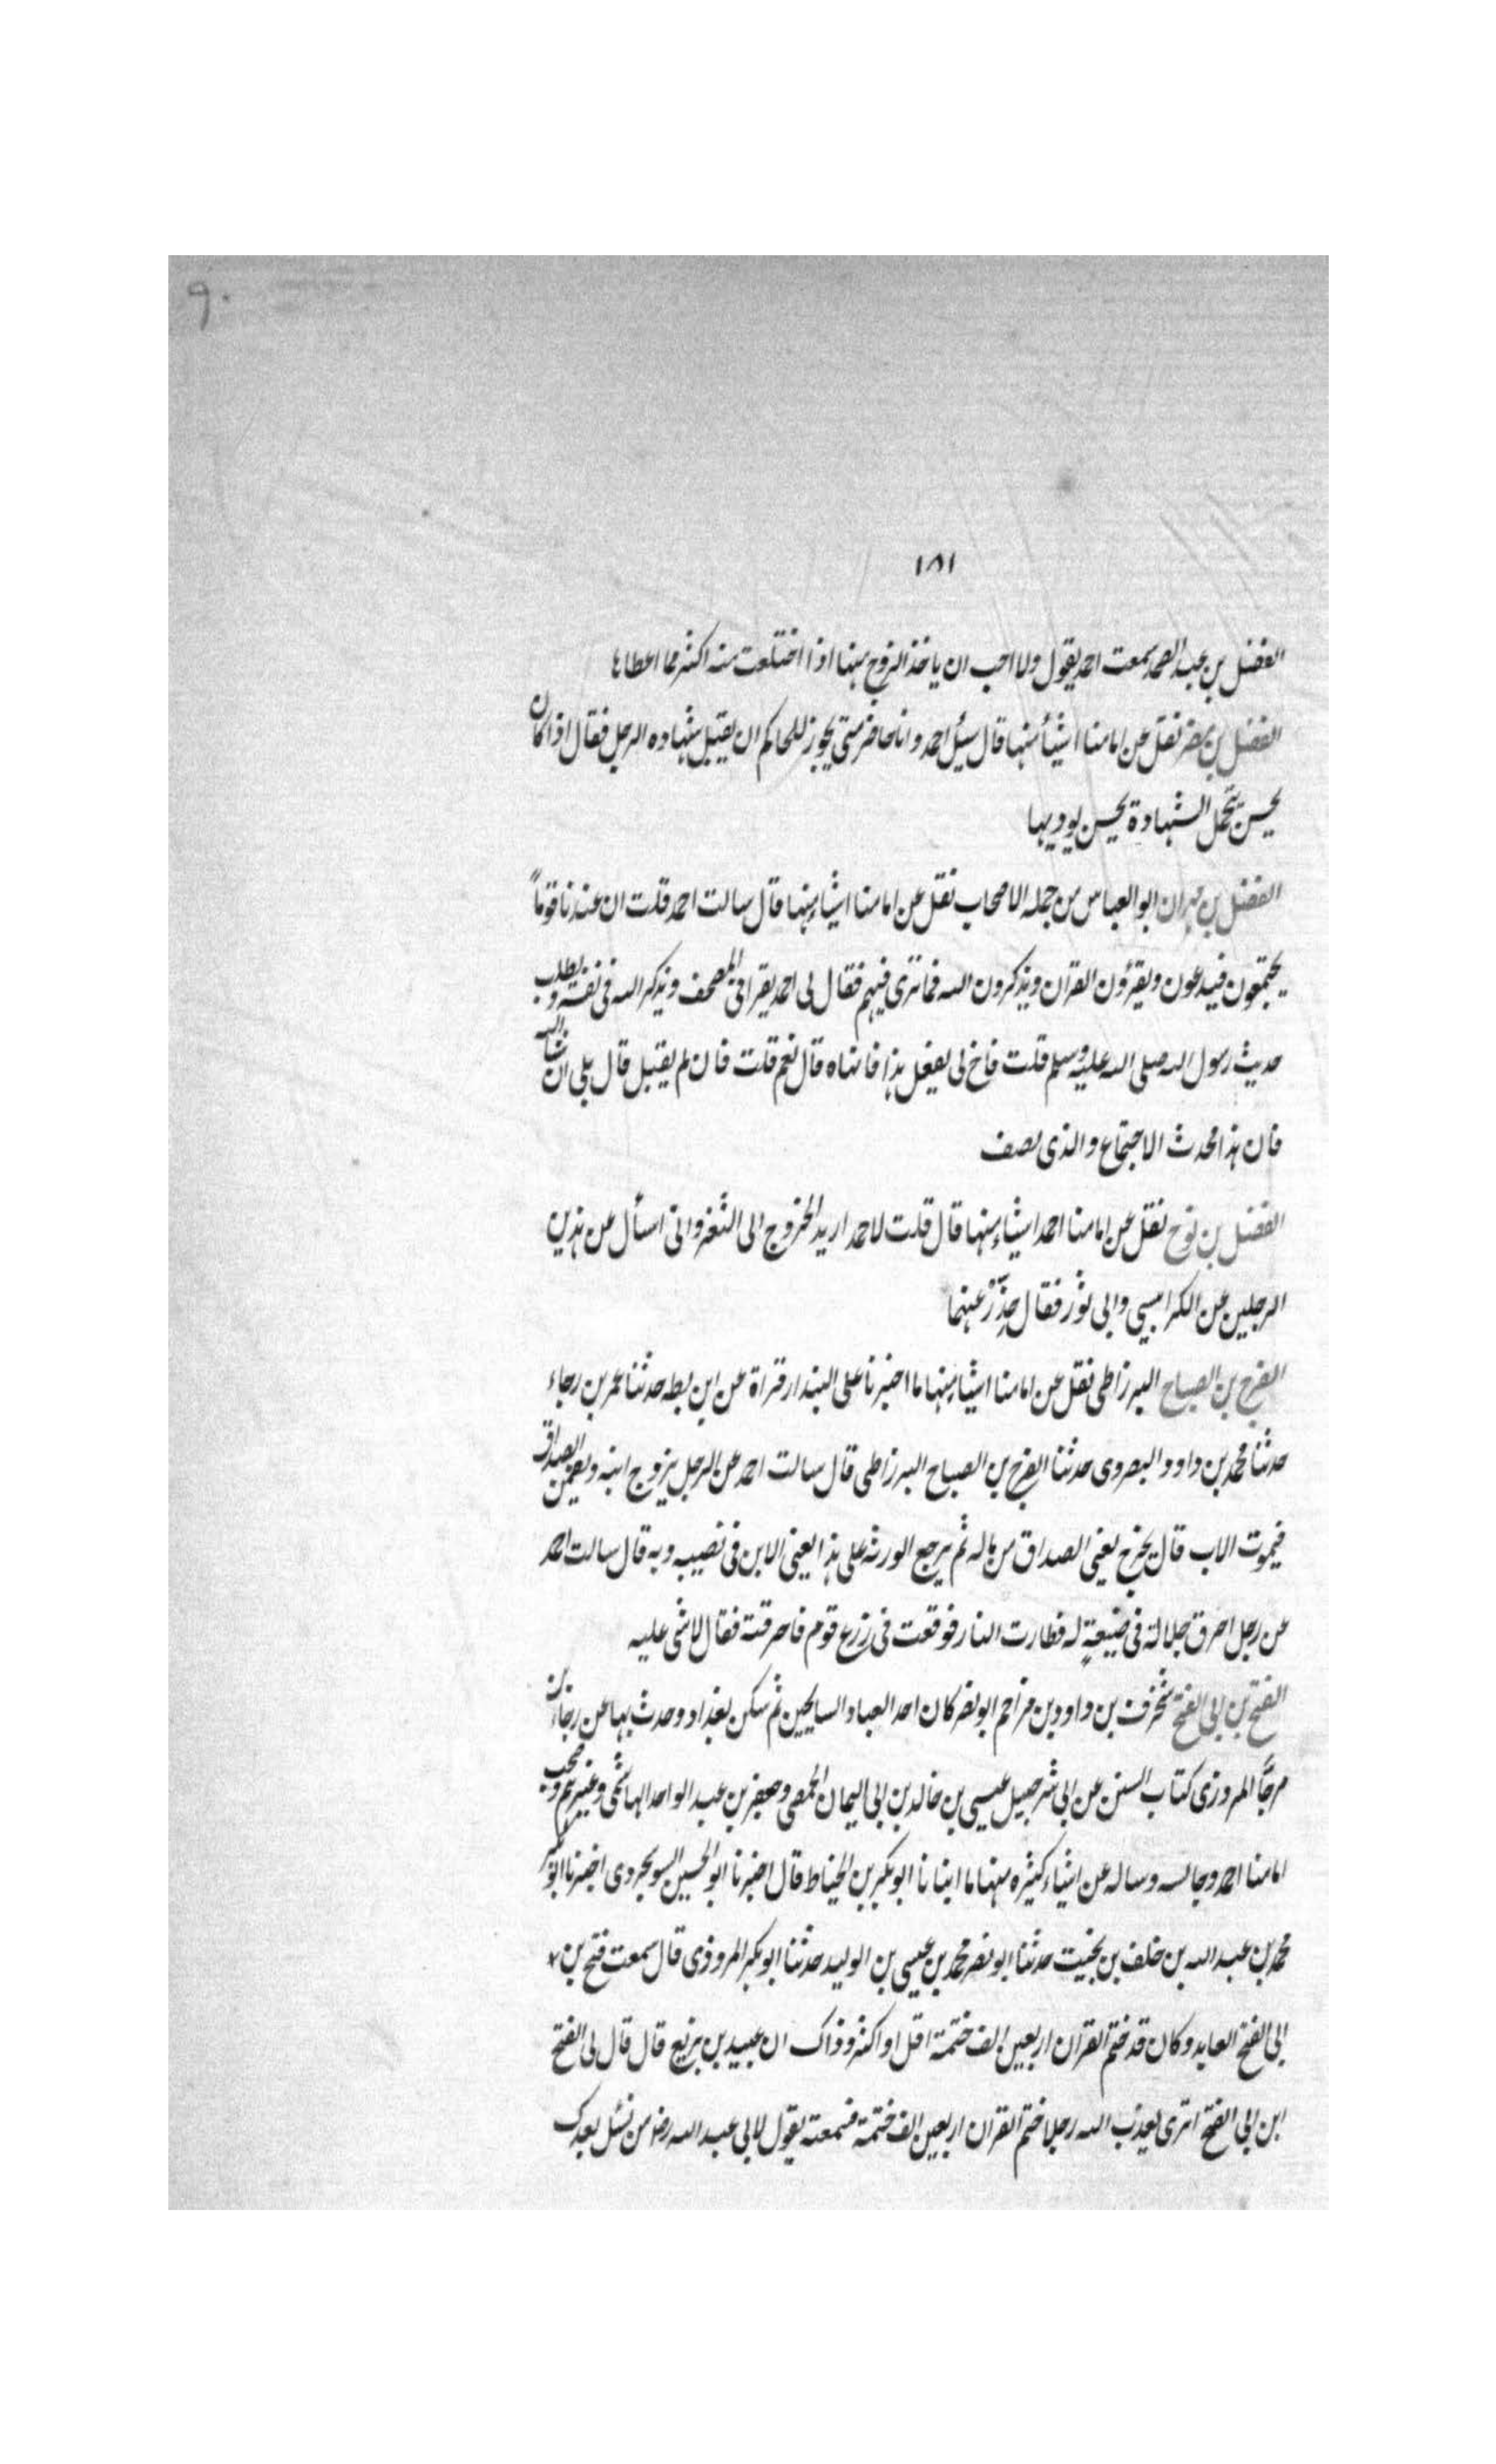 ٩٠
١٨١
الفضل بن عبد الصمد سمعت احمد يقول ولا احب ان ياخذ الزوج منها اذا اختلعت منه اكثر مما اعطاها
الفضل بن مضر نقل عن امامنا اشيأ منها قال سئل احمد وانا حاضر متى يجوز للحاكم ان يقبل شهاده الرجل فقال اذا كان
يحسن يتحمل الشهادة يحسن يوديها
الفضل بن مهران ابو العباس من جمله الاصحاب نقل عن امامنا اشياء منها قال سالت احمد قلت ان عندنا قوماً
يجتمعون فيدعون ويقرؤن القران ويذكرون الله فما ترى فيهم فقال لى احمد يقرا فى المصحف ويذكر الله فى نفسه ويطلب
حديث رسول الله صلى الله عليه وسلم قلت فاخ لى يفعل هذا فانهاه قال نعم قلت فان لم يقبل قال بلى ان شاالله
فان هذا محدث الاجتماع والذى تصف
الفضل بن نوح نقل عن امامنا احمد اشياء منها قال قلت لاحمد اريد الخروج الى الثغر وانى اسأل عن هذين
الرجلين عن الكرابيسى وابى ثور فقال حذّر عنهما
الفرج بن الصباح البرزاطى نقل عن امامنا اشياء منها ما اخبرنا على البندار قراة عن ابن بطه حدثنا عمر بن رجاء
حدثنا محمد بن داود البصروى حدثنا الفرج بن الصباح البرزاطى قال سالت احمد عن الرجل يزوج ابنه ويضمن الصداق
فيموت الاب قال يخرج يعنى الصداق من ماله ثم يرجع الورثه على هذا يعنى الابن فى نصيبه وبه قال سالت احمد
عن رجل احرق جلالة فى ضيعةٍ له فطارت النار فوقعت فى زرع قوم فاحرقته فقال لا شى عليه
الفتح بن ابى الفتح شخرف بن داود بن مزاحم ابو نصر كان احد العباد السايحين ثم سكن بغداد وحدث بها عن رجاء بن
مرجّا المروزى كتاب السنن عن ابى شرحبيل عيسى بن خالد بن ابى اليمان الحمصى وجعفر بن عبد الواحد الهاشمى وغيرهم وصحب
امامنا احمد وجالسه وساله عن اشياء كثيره منها ما انبانا ابو بكر بن الخياط قال اخبرنا ابو الحسين السوسنجردى اخبرنا ابو بكر
محمد بن عبد الله بن خلف بن بخيت حدثنا ابو نصر محمد بن عيسى بن الوليد حدثنا ابو بكر المروذى قال سمعت فتح بن
ابى الفتح العابد وكان قد ختم القران اربعين الف ختمة اقل او اكثر وذاك ان عبيد بن بزيع قال قال لى الفتح
ابن ابى الفتح اترى يعذب الله رجلا ختم القران اربعين الف ختمة فسمعته يقول لابى عبد الله رض من نسئل بعدك